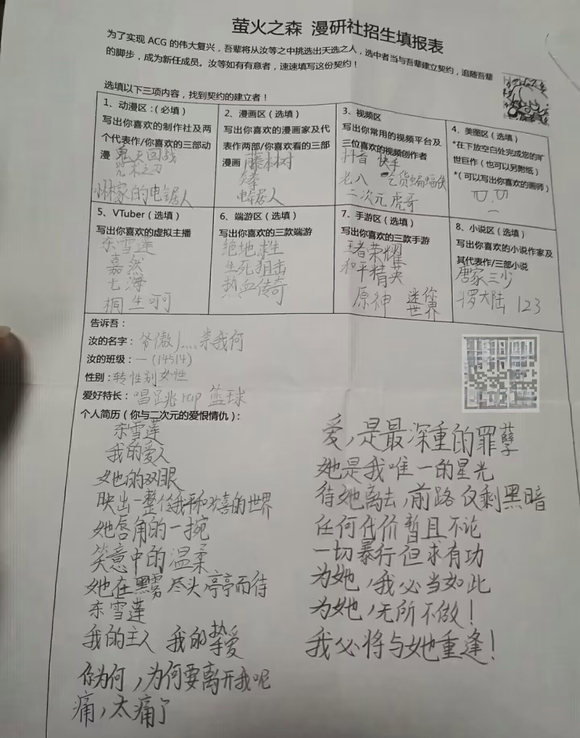 萤火之森 漫研社招生填报表
为了实现 ACG 的伟大复兴，吾辈将从汝等之中挑选出天选之人，选中者当与吾辈建立契约，追随吾辈
的脚步，成为新任成员。汝等如有有意者，速速填写这份契约！
选填以下三项内容，找到契约的建立者！
1、动漫区：(必填)
写出你喜欢的制作社及两
个代表作/你喜欢的三部动
漫 鬼灭回战
咒术之刃
林家的电锯人
2、漫画区（选填）
写出你喜欢的漫画家及代
表作两部/你喜欢看的三部
漫画 藤林树
电锯人
3、视频区
写出你常用的视频平台及
三位喜欢的视频创作者
抖音 快手
老八
二次元虎哥
4、美图区（选填）
*在下放空白处完成您的旷
世巨作（也可以另附纸）
*（可以写出你喜欢的画师）
5、VTuber（选填）
写出你喜欢的虚拟主播
东雪莲
嘉然
七海
桐生可可
6、端游区（选填）
写出你喜欢的三款端游
绝地求生
生死狙击
热血传奇
7、手游区（选填）
写出你喜欢的三款手游
王者荣耀
和平精英
原神 迷你
世界
8、小说区（选填）
写出你喜欢的小说作家及
其代表作/三部小说
唐家三少
罗大陆 123
告诉吾：
汝的名字： 爷傲 奈我何
汝的班级：一(14314)
性别：转性别女性
爱好特长： 唱跳rap 篮球
个人简历（你与二次元的爱恨情仇）：
东雪莲
我的爱人
她的双眼
映出一整个我和喜的世界
她唇角的一挽
笑意中的温柔
她在黑雾尽头亭亭而待
东雪莲
我的主人 我的挚爱
你为何，为何要离开我呢
痛，太痛了
爱，是最深重的罪孽
她是我唯一的星光
待她离去，前路仅剩黑暗
任何代价暂且不论
一切暴行但求有功
为她，我必当如此
为她，无所不做！
我必将与她重逢！